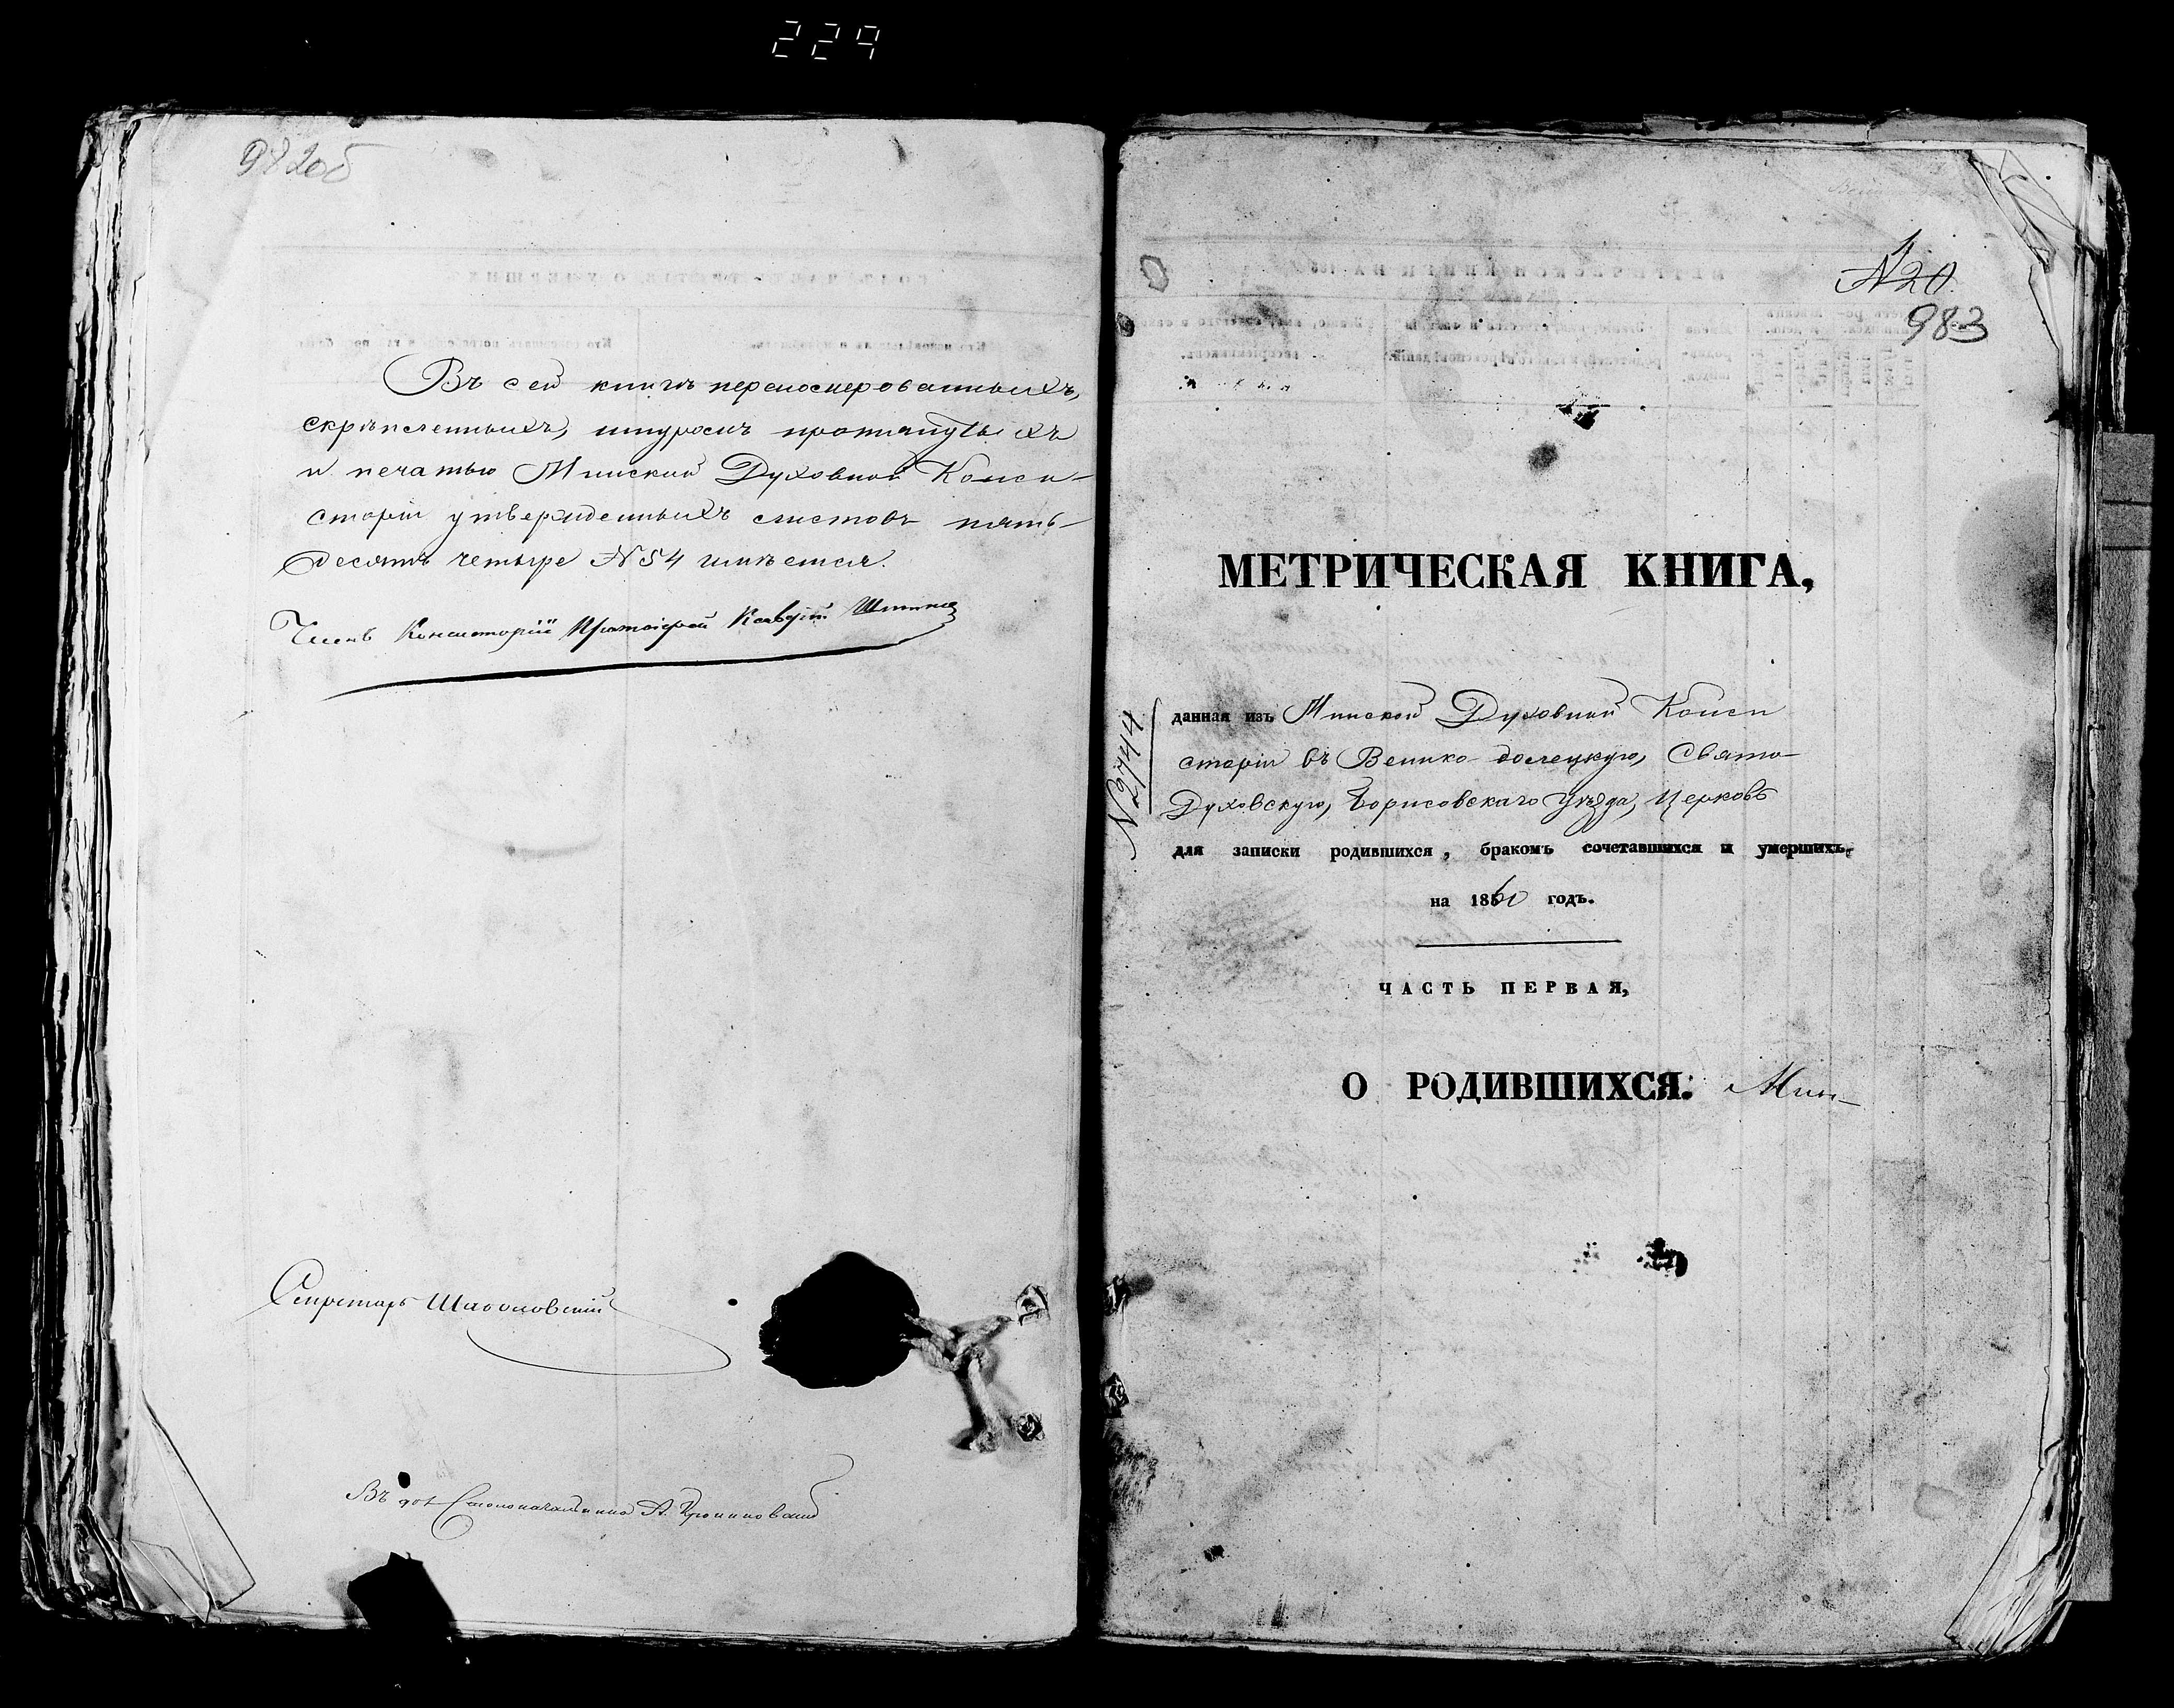 229
982об
Въ сей книгѣ перенумерованныхъ,
скрѣпленныхъ, шнуромъ протянутыхъ
и печатью Минской Духовной Конси-
сторіи утвержденныхъ листовъ пять-
десятъ четыре №54 имѣется.
Членъ Консисторіи Протоіерей
Секретарь Шаболовскій
Въ дол. Столоначальника А.
№20.
983
МЕТРИЧЕСКАЯ КНИГА,
№9744
данная изъ Минской Духовной Конси
сторіи въ Велико-долецкую, Свято-
Духовскую, Борисовскаго Уѣзда, Церковь
для записки родившихся, бракомъ сочетавшихся и умершихъ.
на 1860 годъ.
ЧАСТЬ ПЕРВАЯ,
О РОДИВШИХСЯ. Мин-